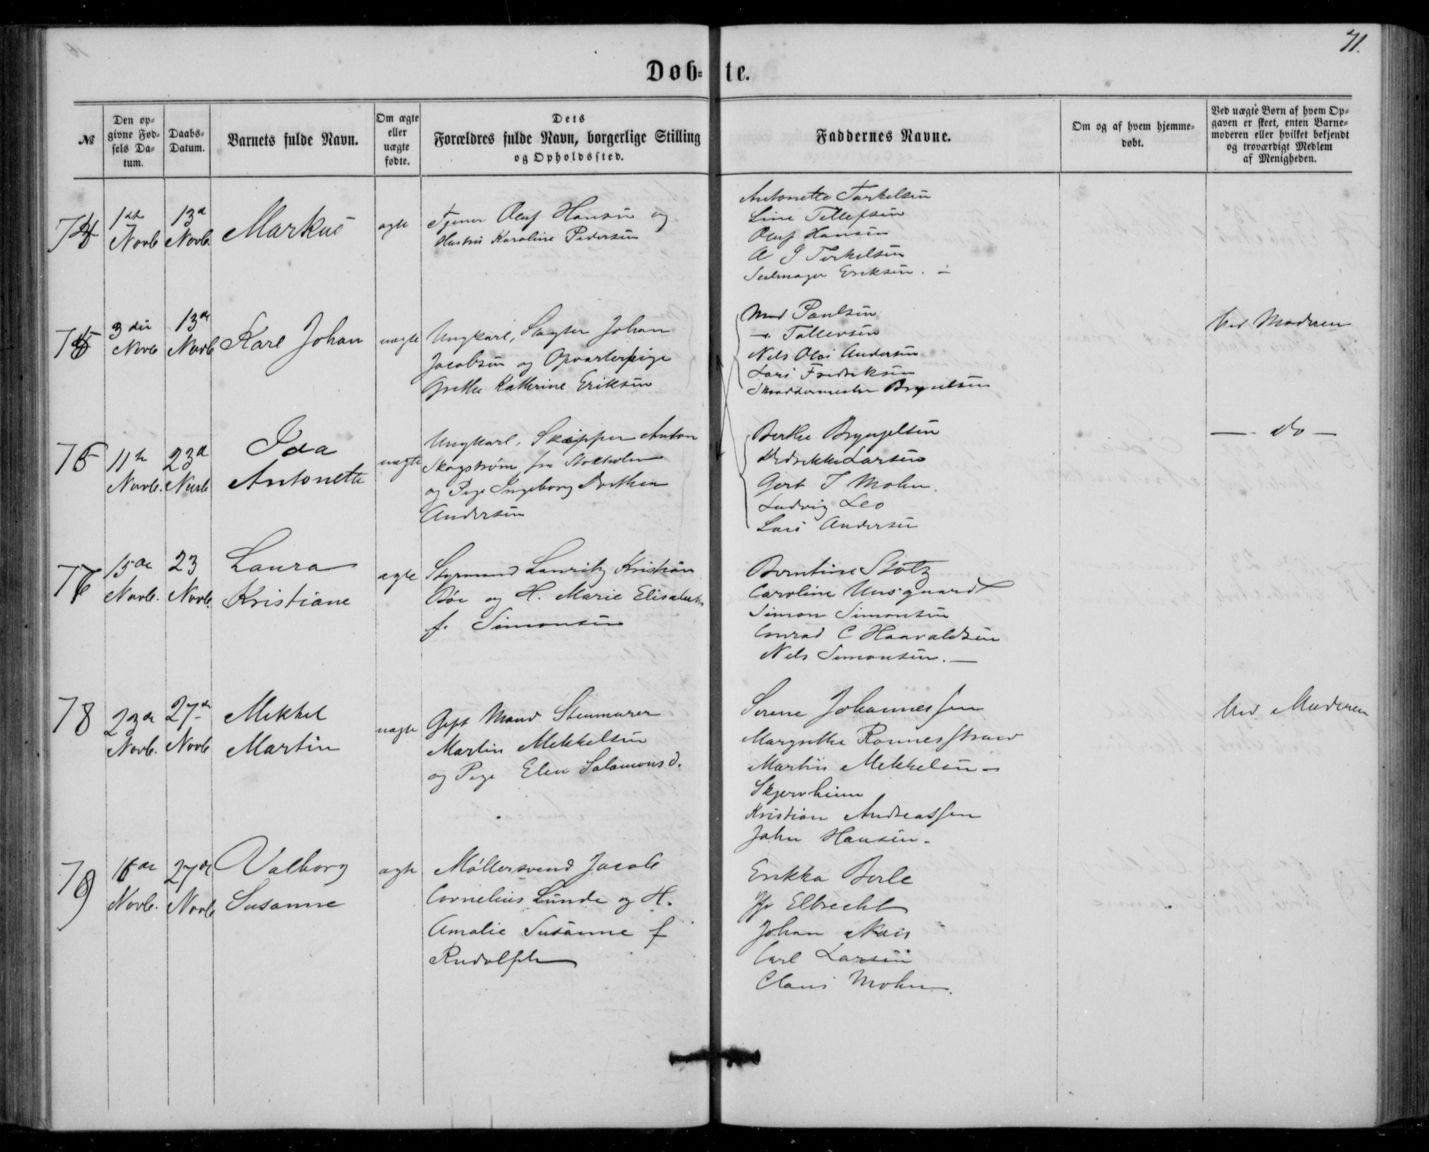 71.
Døb- te.
№
Den op-
givne Fød-
sels Da-
tum.
Daabs-
Datum.
Barnets fulde Navn.
Om ægte
eller
uægte
fødte.
Dets
Forældres fulde Navn, borgerlige Stilling
og Opholdssted.
Faddernes Navne.
Om og af hvem hjemme-
døbt.
Ved uægte Børn af hvem Op-
gaven er skeet, enten Barne-
moderen eller hvilket bekjendt
og troværdigt Medlem
af Menigheden.
74
1ste
Novb.
13de
Novb.
Markus
ægte
Tjener Oluf Hansen og
Hustru Karoline Pedersen
Antonette Torkelsen
Line Tellefsen
Oluf Hansen
A J Torkelsen
Seilmager Eriksen. –
75
3die
Novb
13de
Novb
Karl Johan
uægte
Ungkarl, Slagter Johan
Jacobsen og Opvarterpige
Grethe Katherine Eriksen
Mad Paulsen
— Tallevsen
Nels Olai Andersen
Lars Fredriksen
Skræddermester Bryuelsen
Ved Moderen
76
11te
Novb.
23de
Novb
Ida
Antonette
uægte
Ungkarl, Skipper Anton
Skogstrøm fra Stokholm
og Pige Ingeborg Dorthea
Andersen
Berthe Bryngelsen
Hedrikke Larsen
Gert T Mohn.
Ludvig Leo
Lars Andersen
— do —
77
15de
Novb.
23
Novb.
Laura
Kristiane
ægte
Styrmand Lauritz Kristian
Bøe og H. Marie Elisabeth
f. Simonsen
Berntine Stoltz
Caroline Unsgaard
Simon Simonsen
Conrad C Haavaldsen
Nels Simonsen. —
78
23de
Novb.
27de
Novb
Mikkel
Martin
uægte
Gift Mand Steenmurer
Martin Mekkelsen
og Pige Elen Salamonsd.
Serene Johannessen
Margrethe Rønnesstrand
Martin Mekkelsen –
Skjerveheim
Kristian Andreassen
John Hansen.
Ved Moderen
79
18de
Novb.
27de
Novb
Valborg
Susanne
ægte
Møllersvend Jacob
Cornelius Lunde og H.
Amalie Susanne f
Rudolph
Erikka Berle
Elbrecht
Johan
Carl Larsen
Claus Mohn.